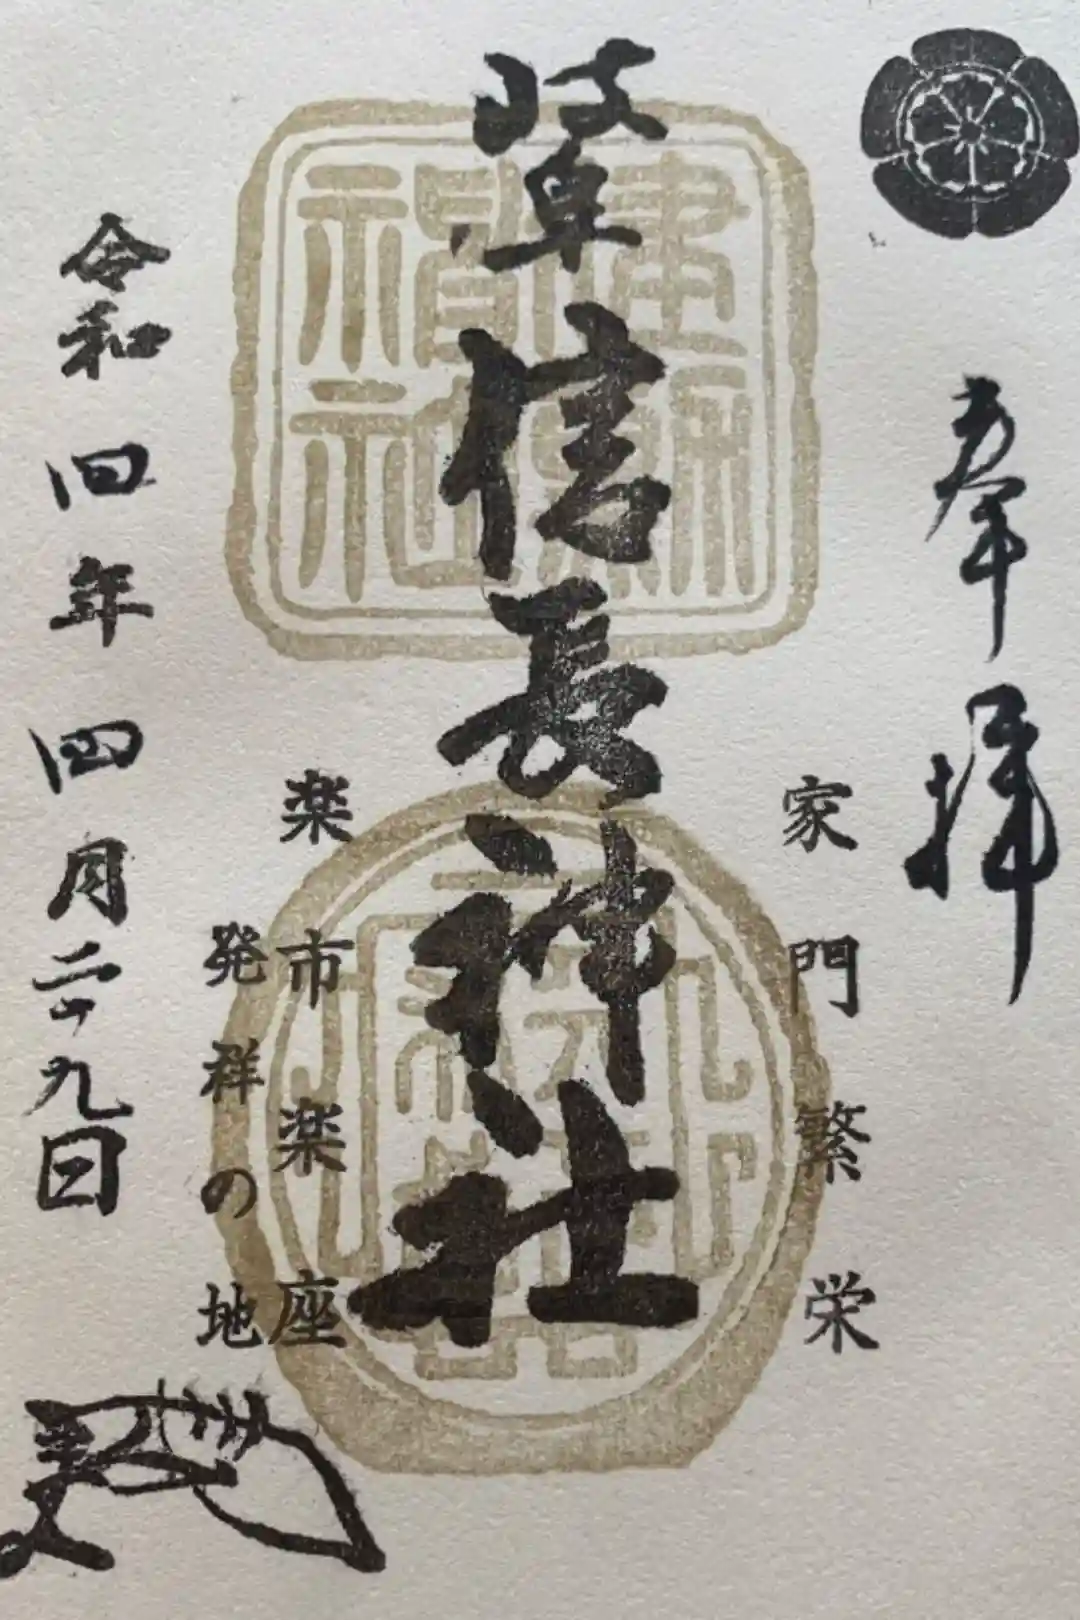 奉拝
家門繁栄
岐阜信長神社
建勲神社
楽市楽座
発祥の地
令和四年四月二十九日